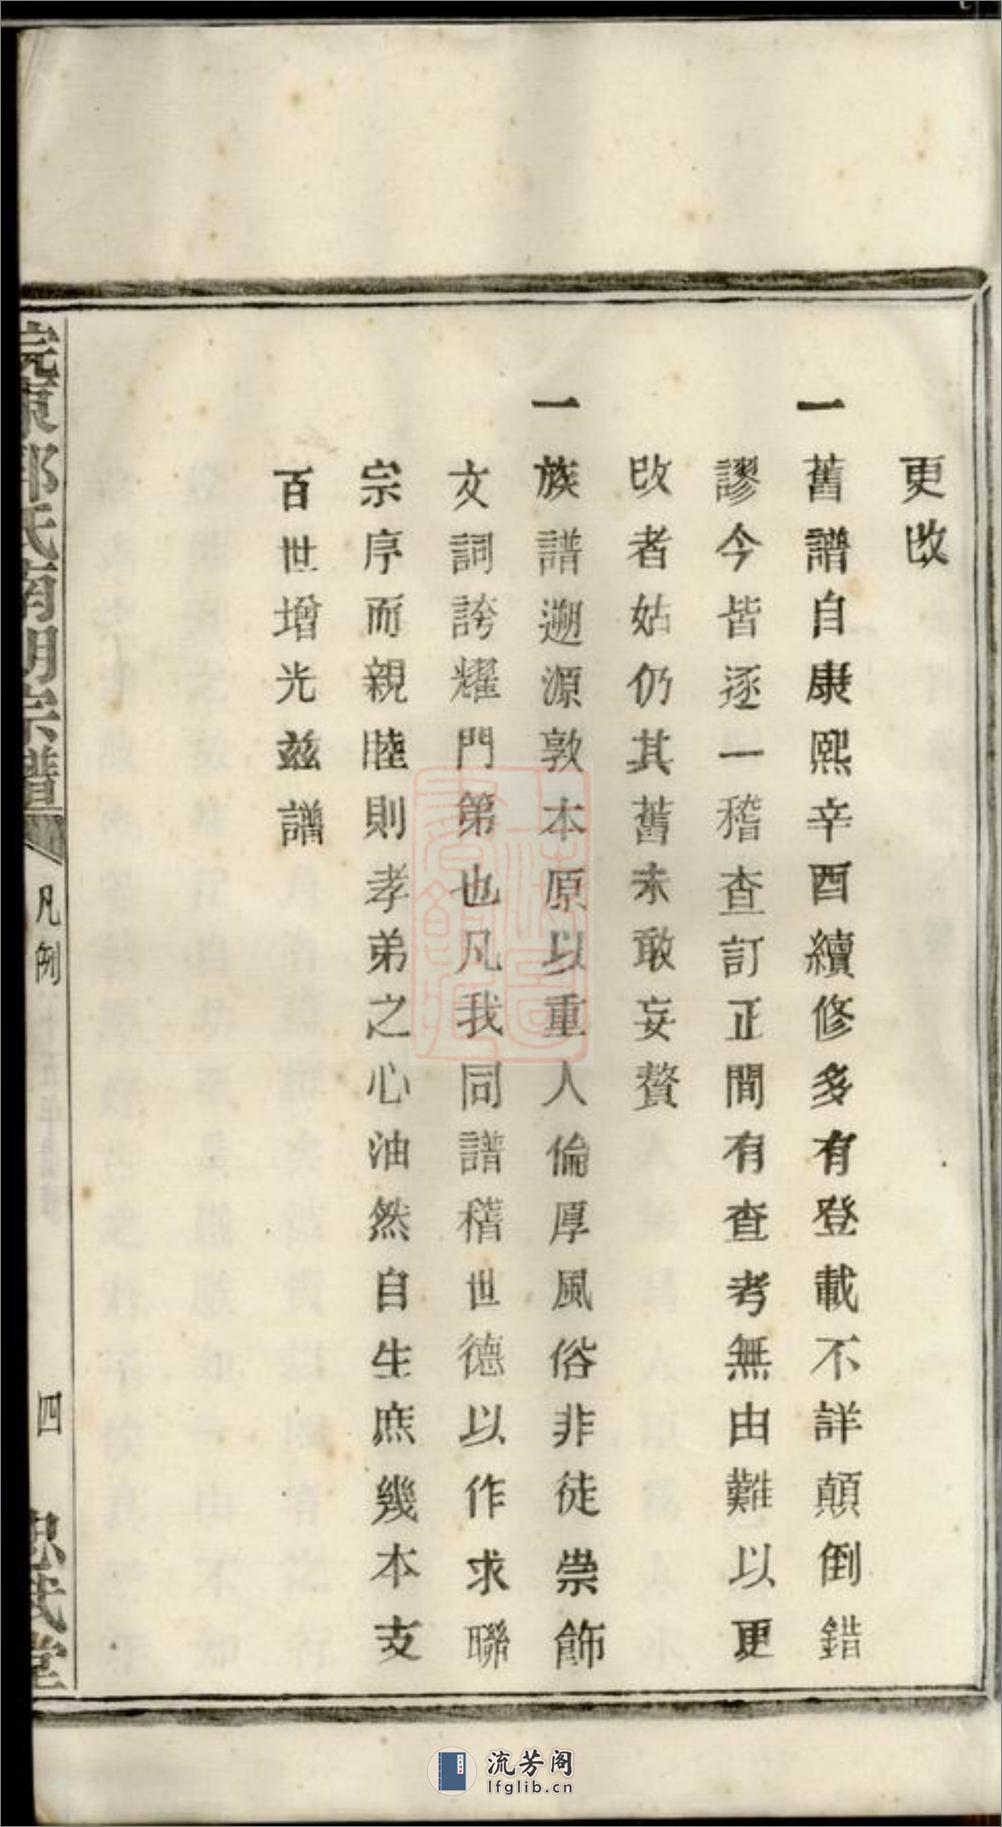 更改
一舊譜自康熙辛酉續修多有登載不詳顛倒錯
謬今皆逐一稽查訂正間有查考無由難以更
改者姑仍其舊未敢妄贅
一族譜遡源敦本原以重人倫厚風俗非徒崇飾
文詞誇耀門第也凡我同譜稽世德以作求聯
宗序而親睦則孝弟之心油然自生庶幾本支
百世增光兹譜
氏南湖宗譜
凡例
四
忠武堂
流芳阁
lfglib.cn